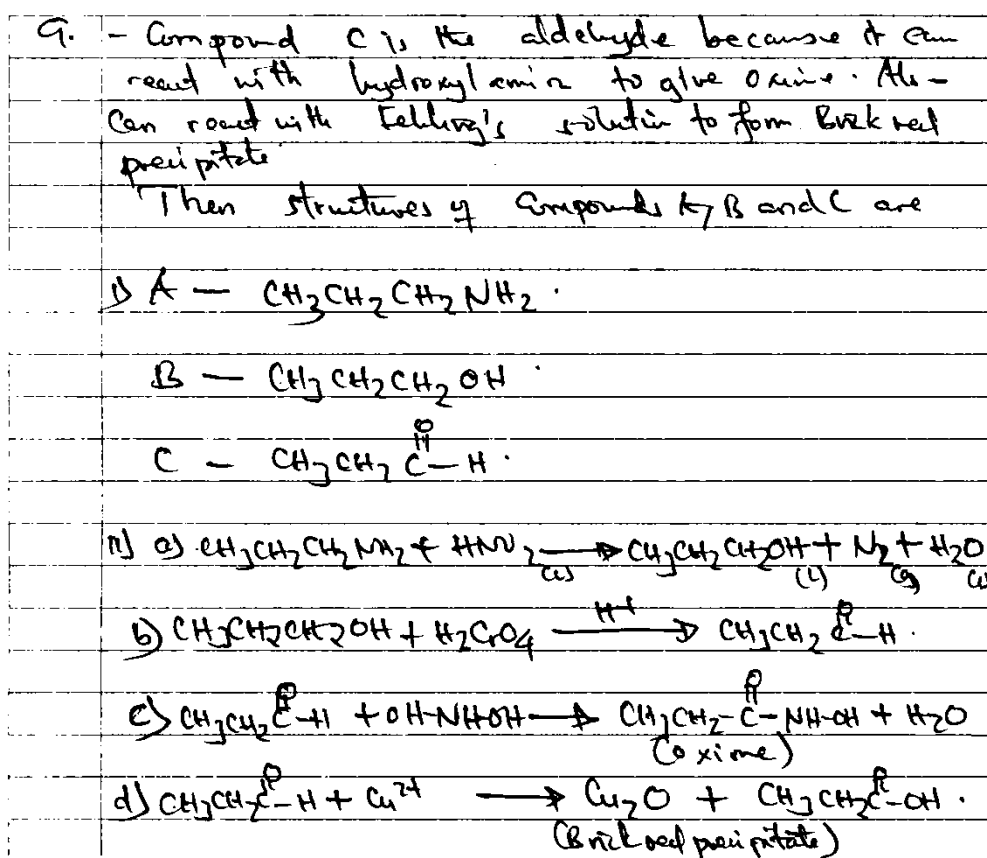 9. - Compound C is the aldehyde because it can
react with hydroxylamin to give Oxime. Also
Can react with Fehling's solutin to form Brick red
precipitate
Then structures of Compounds A, B and C are
i) A — CH3CH2CH2NH2.
B — CH3CH2CH2OH.
C — CH3CH2C(=O)-H.
ii) a) CH3CH2CH2NH2 + HNO2(l) → CH3CH2CH2OH(l) + N2(g) + H2O(l)
b) CH3CH2CH2OH + H2CrO4 —H+→ CH3CH2C(=O)-H.
c) CH3CH2C(=O)-H + OH-NHOH → CH3CH2-C(=O)-NH-OH + H2O
(Oxime)
d) CH3CH2C(=O)-H + Cu2+ → Cu2O + CH3CH2C(=O)-OH.
(Brick red precipitate)